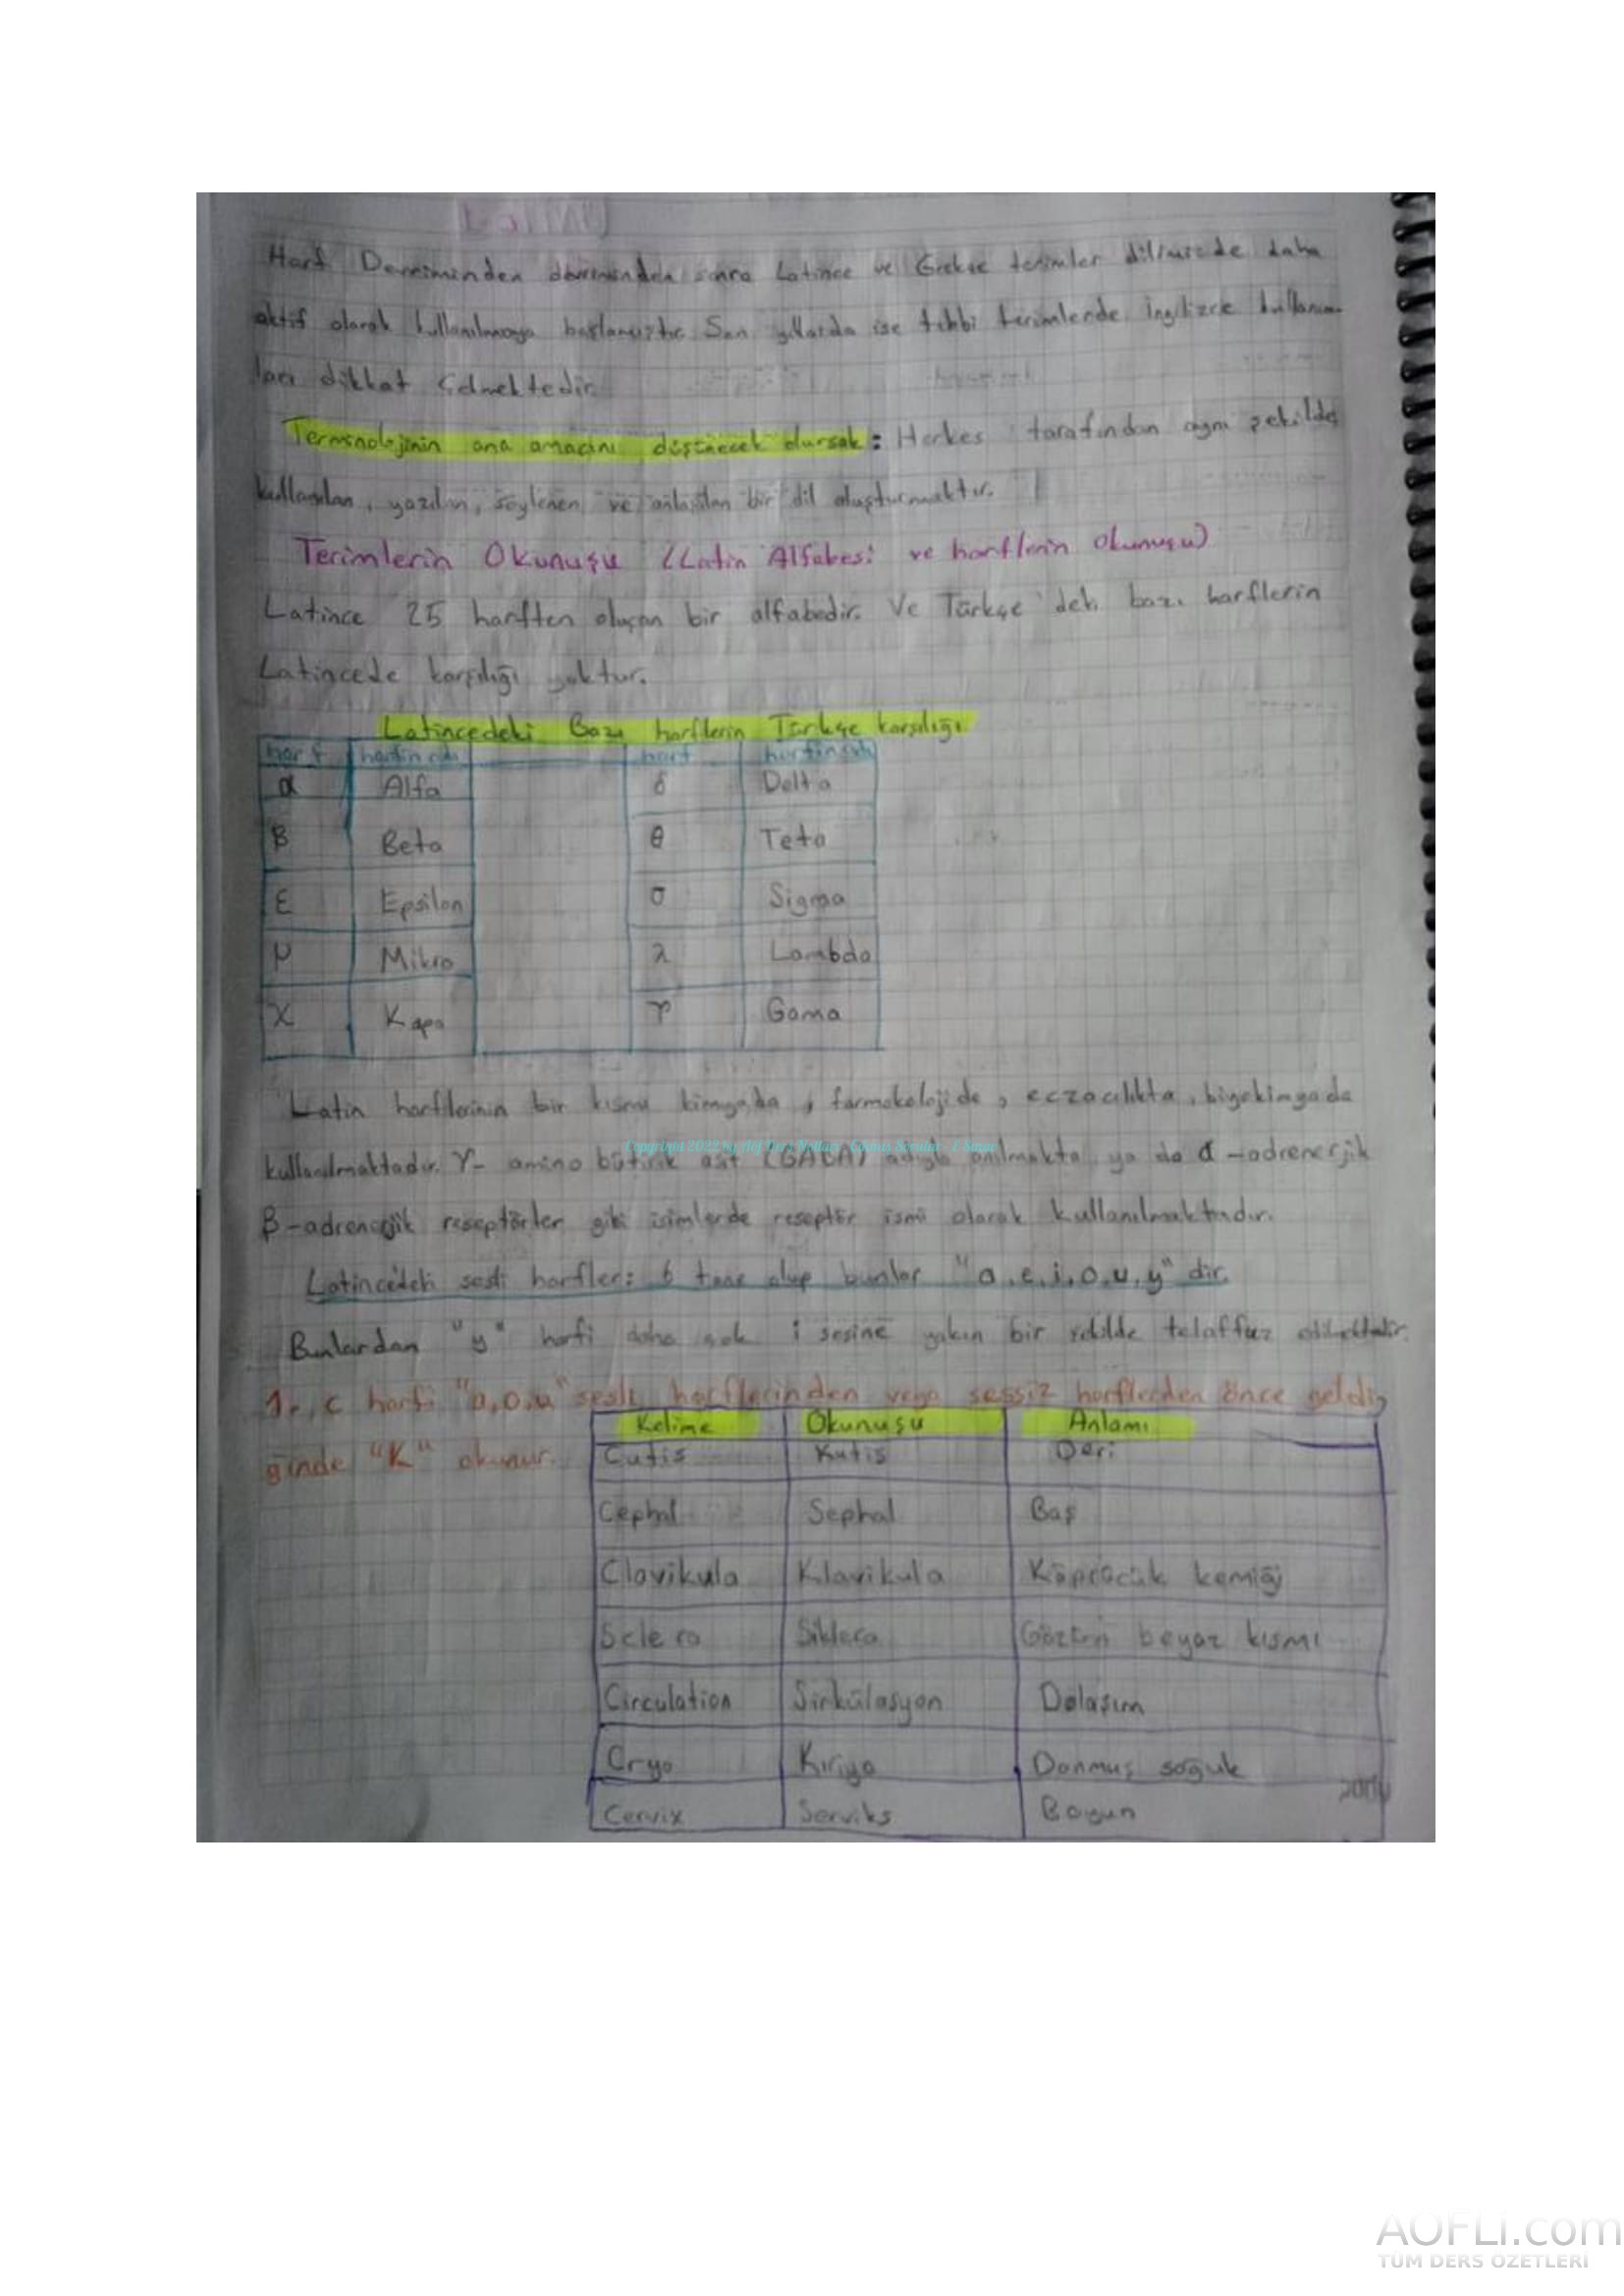 Harf Devriminden devriminden sonra Latince ve Grekçe terimler dilimizde daha
aktif olarak kullanılmaya başlamıştır. Son yıllarda ise tıbbi terimlerde İngilizce kullanım-
ları dikkat çekmektedir.
Terminolojinin ana amacını düşünecek olursak: Herkes tarafından aynı şekilde
kullanılan, yazılan, söylenen ve anlaşılan bir dil oluşturmaktır.
Terimlerin Okunuşu (Latin Alfabesi ve harflerin okunuşu)
Latince 25 harften oluşan bir alfabedir. Ve Türkçe'deki bazı harflerin
Latincede karşılığı yoktur.
Latincedeki Bazı harflerin Türkçe karşılığı
harf harfin adı harf harfin adı
α Alfa δ Delta
β Beta θ Teta
ε Epsilon σ Sigma
μ Mikro λ Lambda
X Kapa γ Gama
Latin harflerinin bir kısmı kimyada, farmakolojide, eczacılıkta, biyokimyada
Copyright 2022 by Aöf Ders Notları - Çıkmış Sorular -
kullanılmaktadır. γ- amino bütirik asit (GABA) adıyla anılmakta ya da α-adrenerjik
β-adrenerjik reseptörler gibi isimlerde reseptör ismi olarak kullanılmaktadır.
Latincedeki sesli harfler: 6 tane olup bunlar "a,e,i,o,u,y" dir.
Bunlardan "y" harfi daha çok i sesine yakın bir şekilde telaffuz edilmektedir.
1-, c harfi "a,o,u" sesli harflerinden veya sessiz harflerden önce geldi-
ğinde "K" okunur.
Kelime Okunuşu Anlamı
Cutis Kutis Deri
Cephal Sephal Baş
Clavikula Klavikula Köprücük kemiği
Sclera Siklera Gözün beyaz kısmı
Circulation Sirkülasyon Dolaşım
Cryo Kıriyo Donmuş soğuk
Cervix Serviks Boyun
AOFLI.com
TÜM DERS ÖZETLERİ